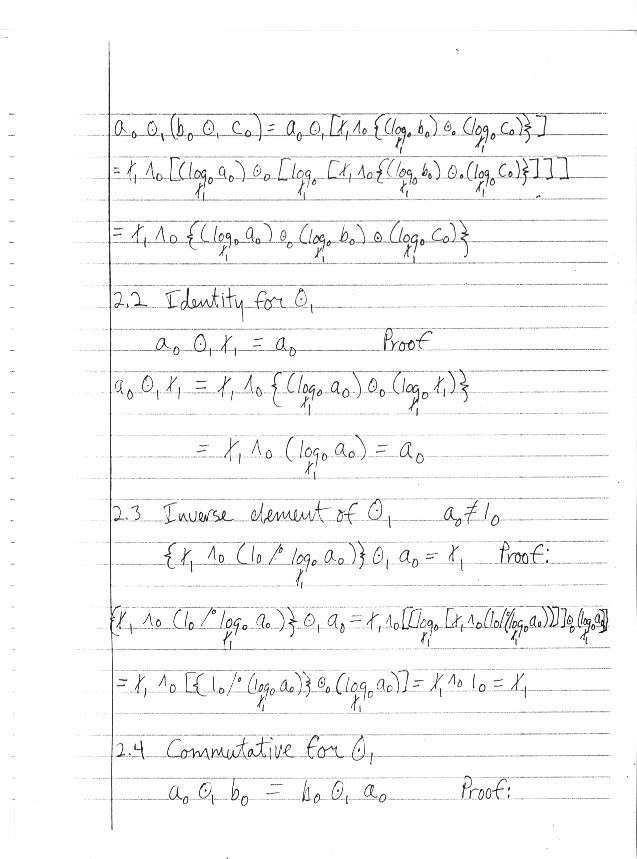 a₀ ⊙₁ (b₀ ⊙₁ c₀) = a₀ ⊙₁ [χ₁ ∧₀ {(log₀_χ₁ b₀) ⊙₀ (log₀_χ₁ c₀)}]
= χ₁ ∧₀ [(log₀_χ₁ a₀) ⊙₀ [log₀_χ₁ [χ₁ ∧₀ {(log₀_χ₁ b₀) ⊙₀ (log₀_χ₁ c₀)}]]]
= χ₁ ∧₀ {(log₀_χ₁ a₀) ⊙₀ (log₀_χ₁ b₀) ⊙ (log₀_χ₁ c₀)}
2.2 Identity for ⊙₁
a₀ ⊙₁ χ₁ = a₀ Proof
a₀ ⊙₁ χ₁ = χ₁ ∧₀ {(log₀_χ₁ a₀) ⊙₀ (log₀_χ₁ χ₁)}
= χ₁ ∧₀ (log₀_χ₁ a₀) = a₀
2.3 Inverse element of ⊙₁ a₀ ≠ 1₀
{χ₁ ∧₀ (1₀ /° log₀_χ₁ a₀)} ⊙₁ a₀ = χ₁ Proof:
{χ₁ ∧₀ (1₀ /° log₀_χ₁ a₀)} ⊙₁ a₀ = χ₁ ∧₀ [[log₀_χ₁ [χ₁ ∧₀ (1₀ /° (log₀_χ₁ a₀))]] ⊙₀ (log₀_χ₁ a₀)]
= χ₁ ∧₀ [{1₀ /° (log₀_χ₁ a₀)} ⊙₀ (log₀_χ₁ a₀)] = χ₁ ∧₀ 1₀ = χ₁
2.4 Commutative for ⊙₁
a₀ ⊙₁ b₀ = b₀ ⊙₁ a₀ Proof: